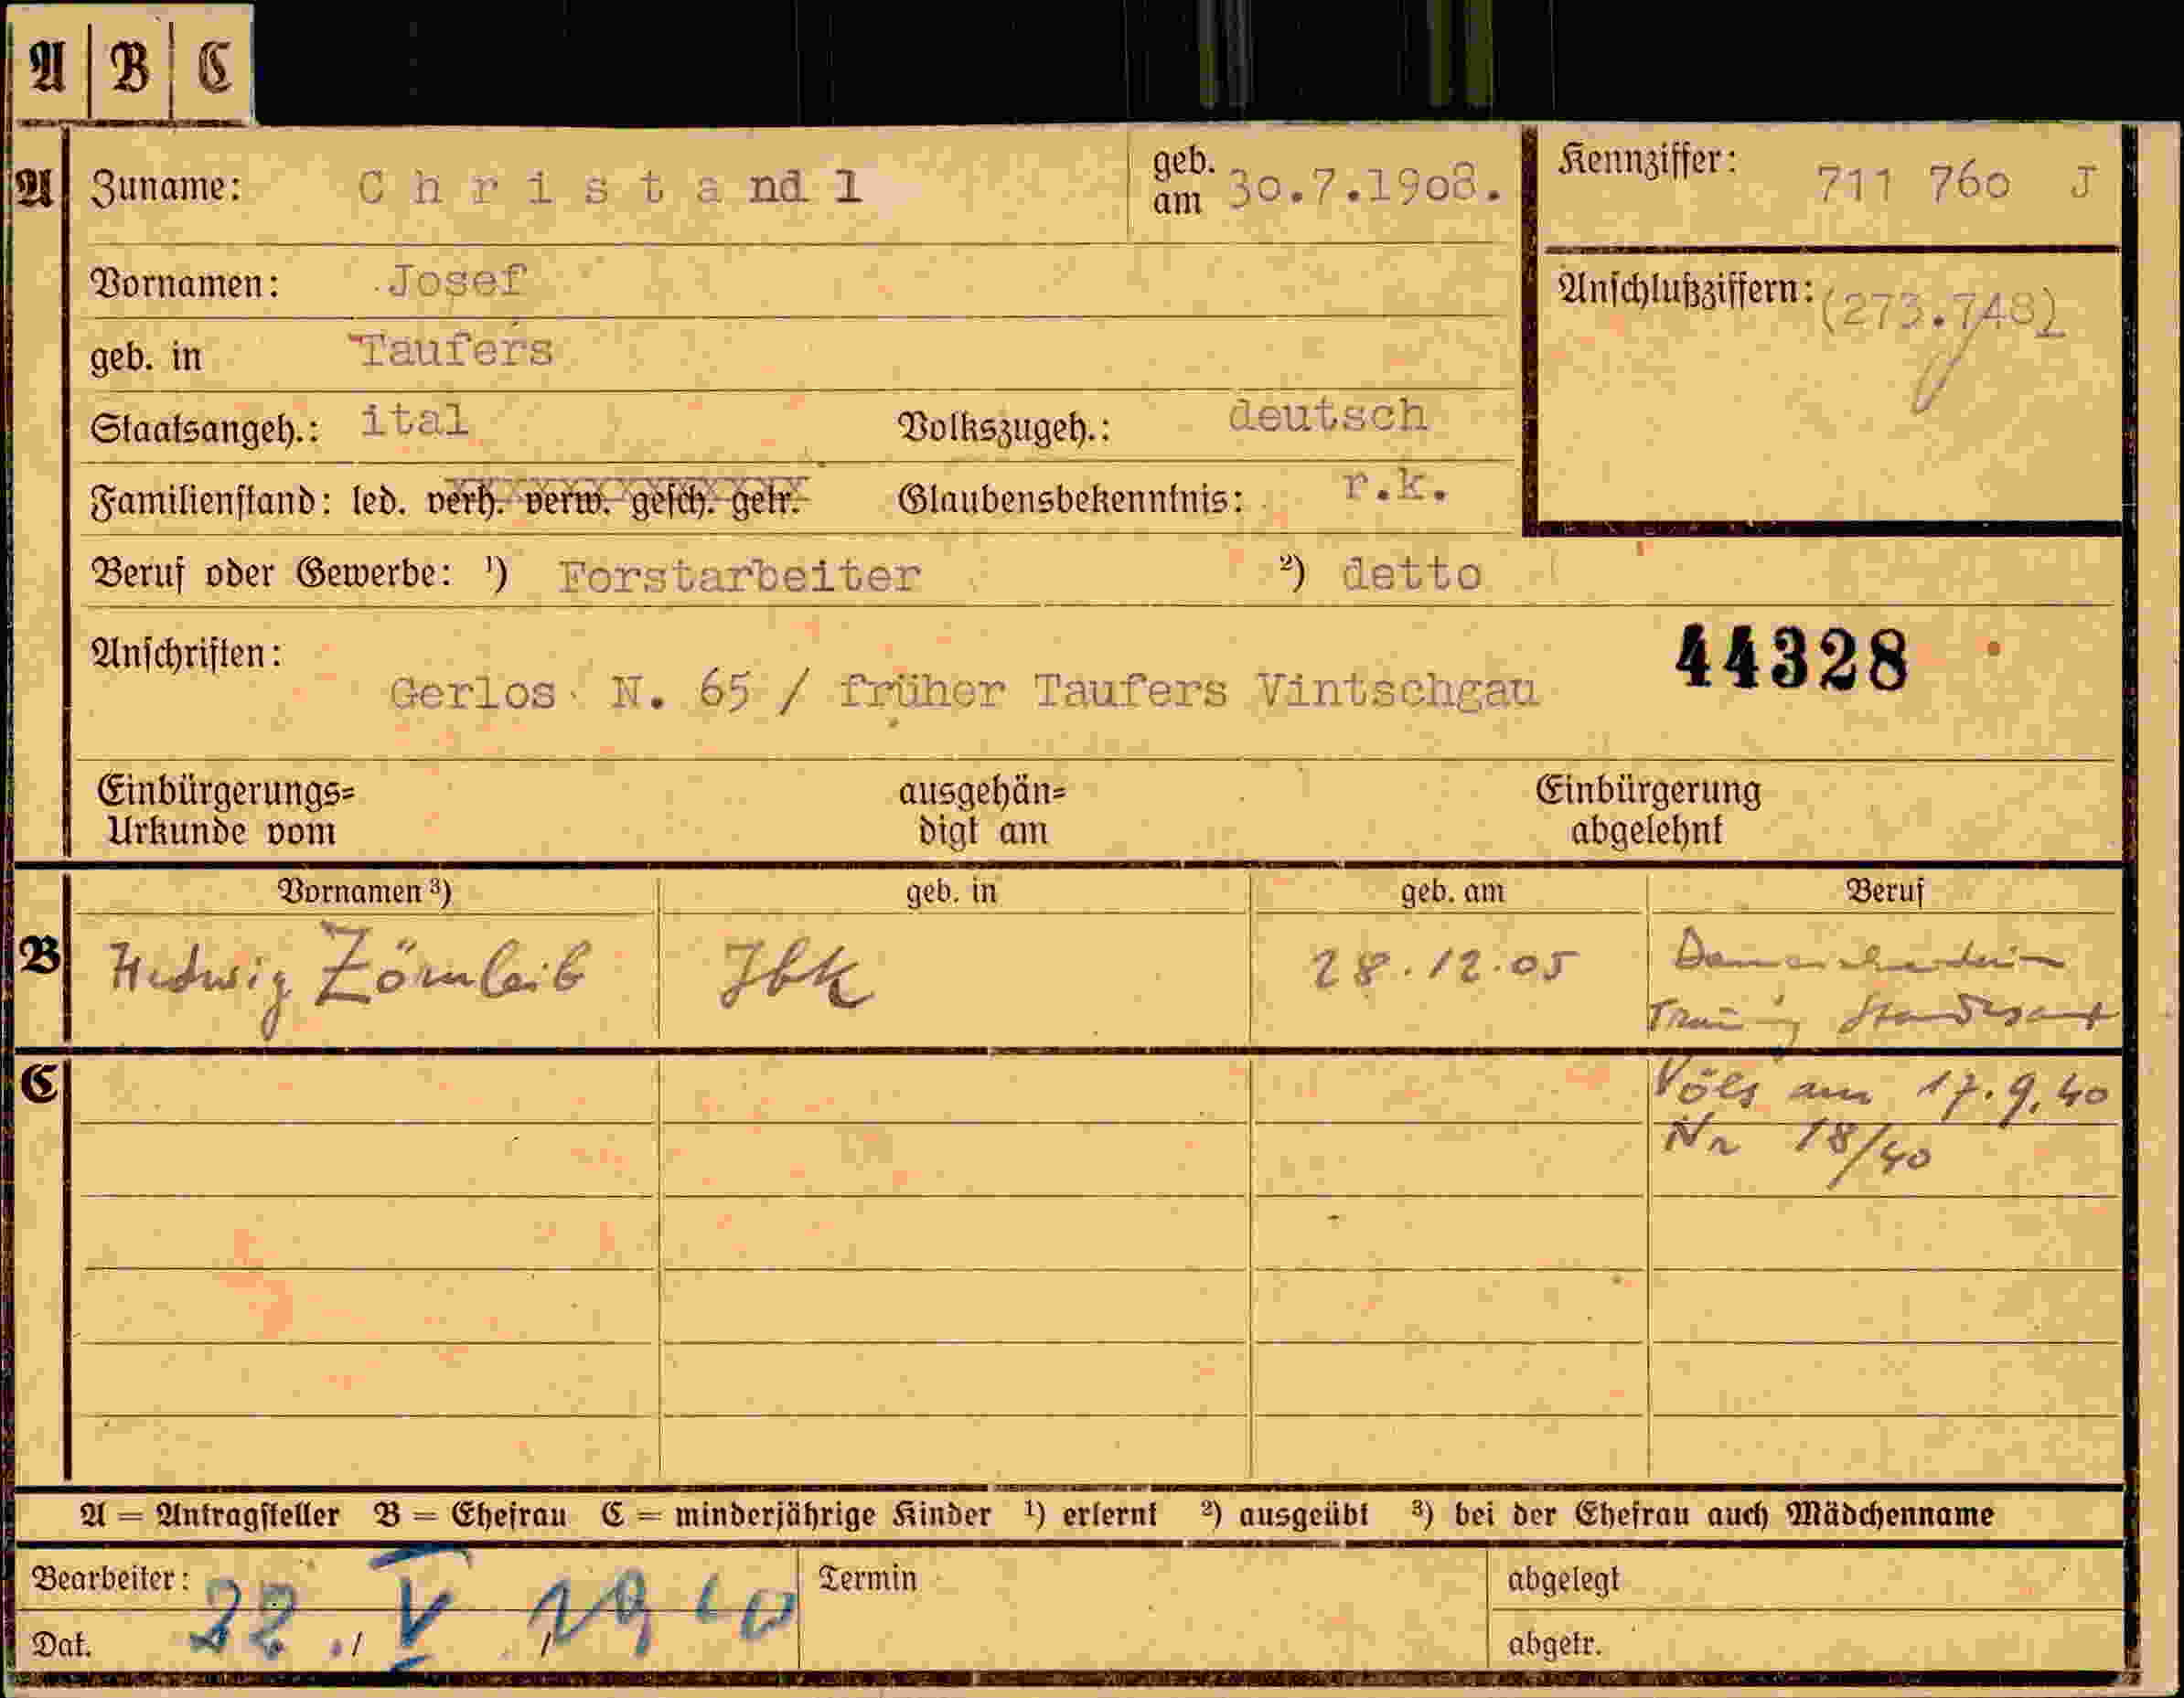 A B C
A Zuname: Christandl geb. am 30.7.1908. Kennziffer: 711 760 J
Vornamen: Josef Anschlußziffern: (273.748)
geb. in Taufers
Staatsangeh.: ital Volkszugeh.: deutsch
Familienstand: led. verh. verw. gesch. getr. Glaubensbekenntnis: r.k.
Beruf oder Gewerbe: ¹) Forstarbeiter ²) detto
Anschriften: 44328
Gerlos N. 65 / früher Taufers Vintschgau
Einbürgerungs= ausgehän= Einbürgerung
Urkunde vom digt am abgelehnt
Vornamen ³) geb. in geb. am Beruf
B Hedwig Zörnleib Jbk 28.12.05
Trauung Standesamt
C Völs am 17.9.40
Nr 18/40
A = Antragsteller B = Ehefrau C = minderjährige Kinder ¹) erlernt ²) ausgeübt ³) bei der Ehefrau auch Mädchenname
Bearbeiter: Termin abgelegt
Dat. 22./V./1940 abgetr.